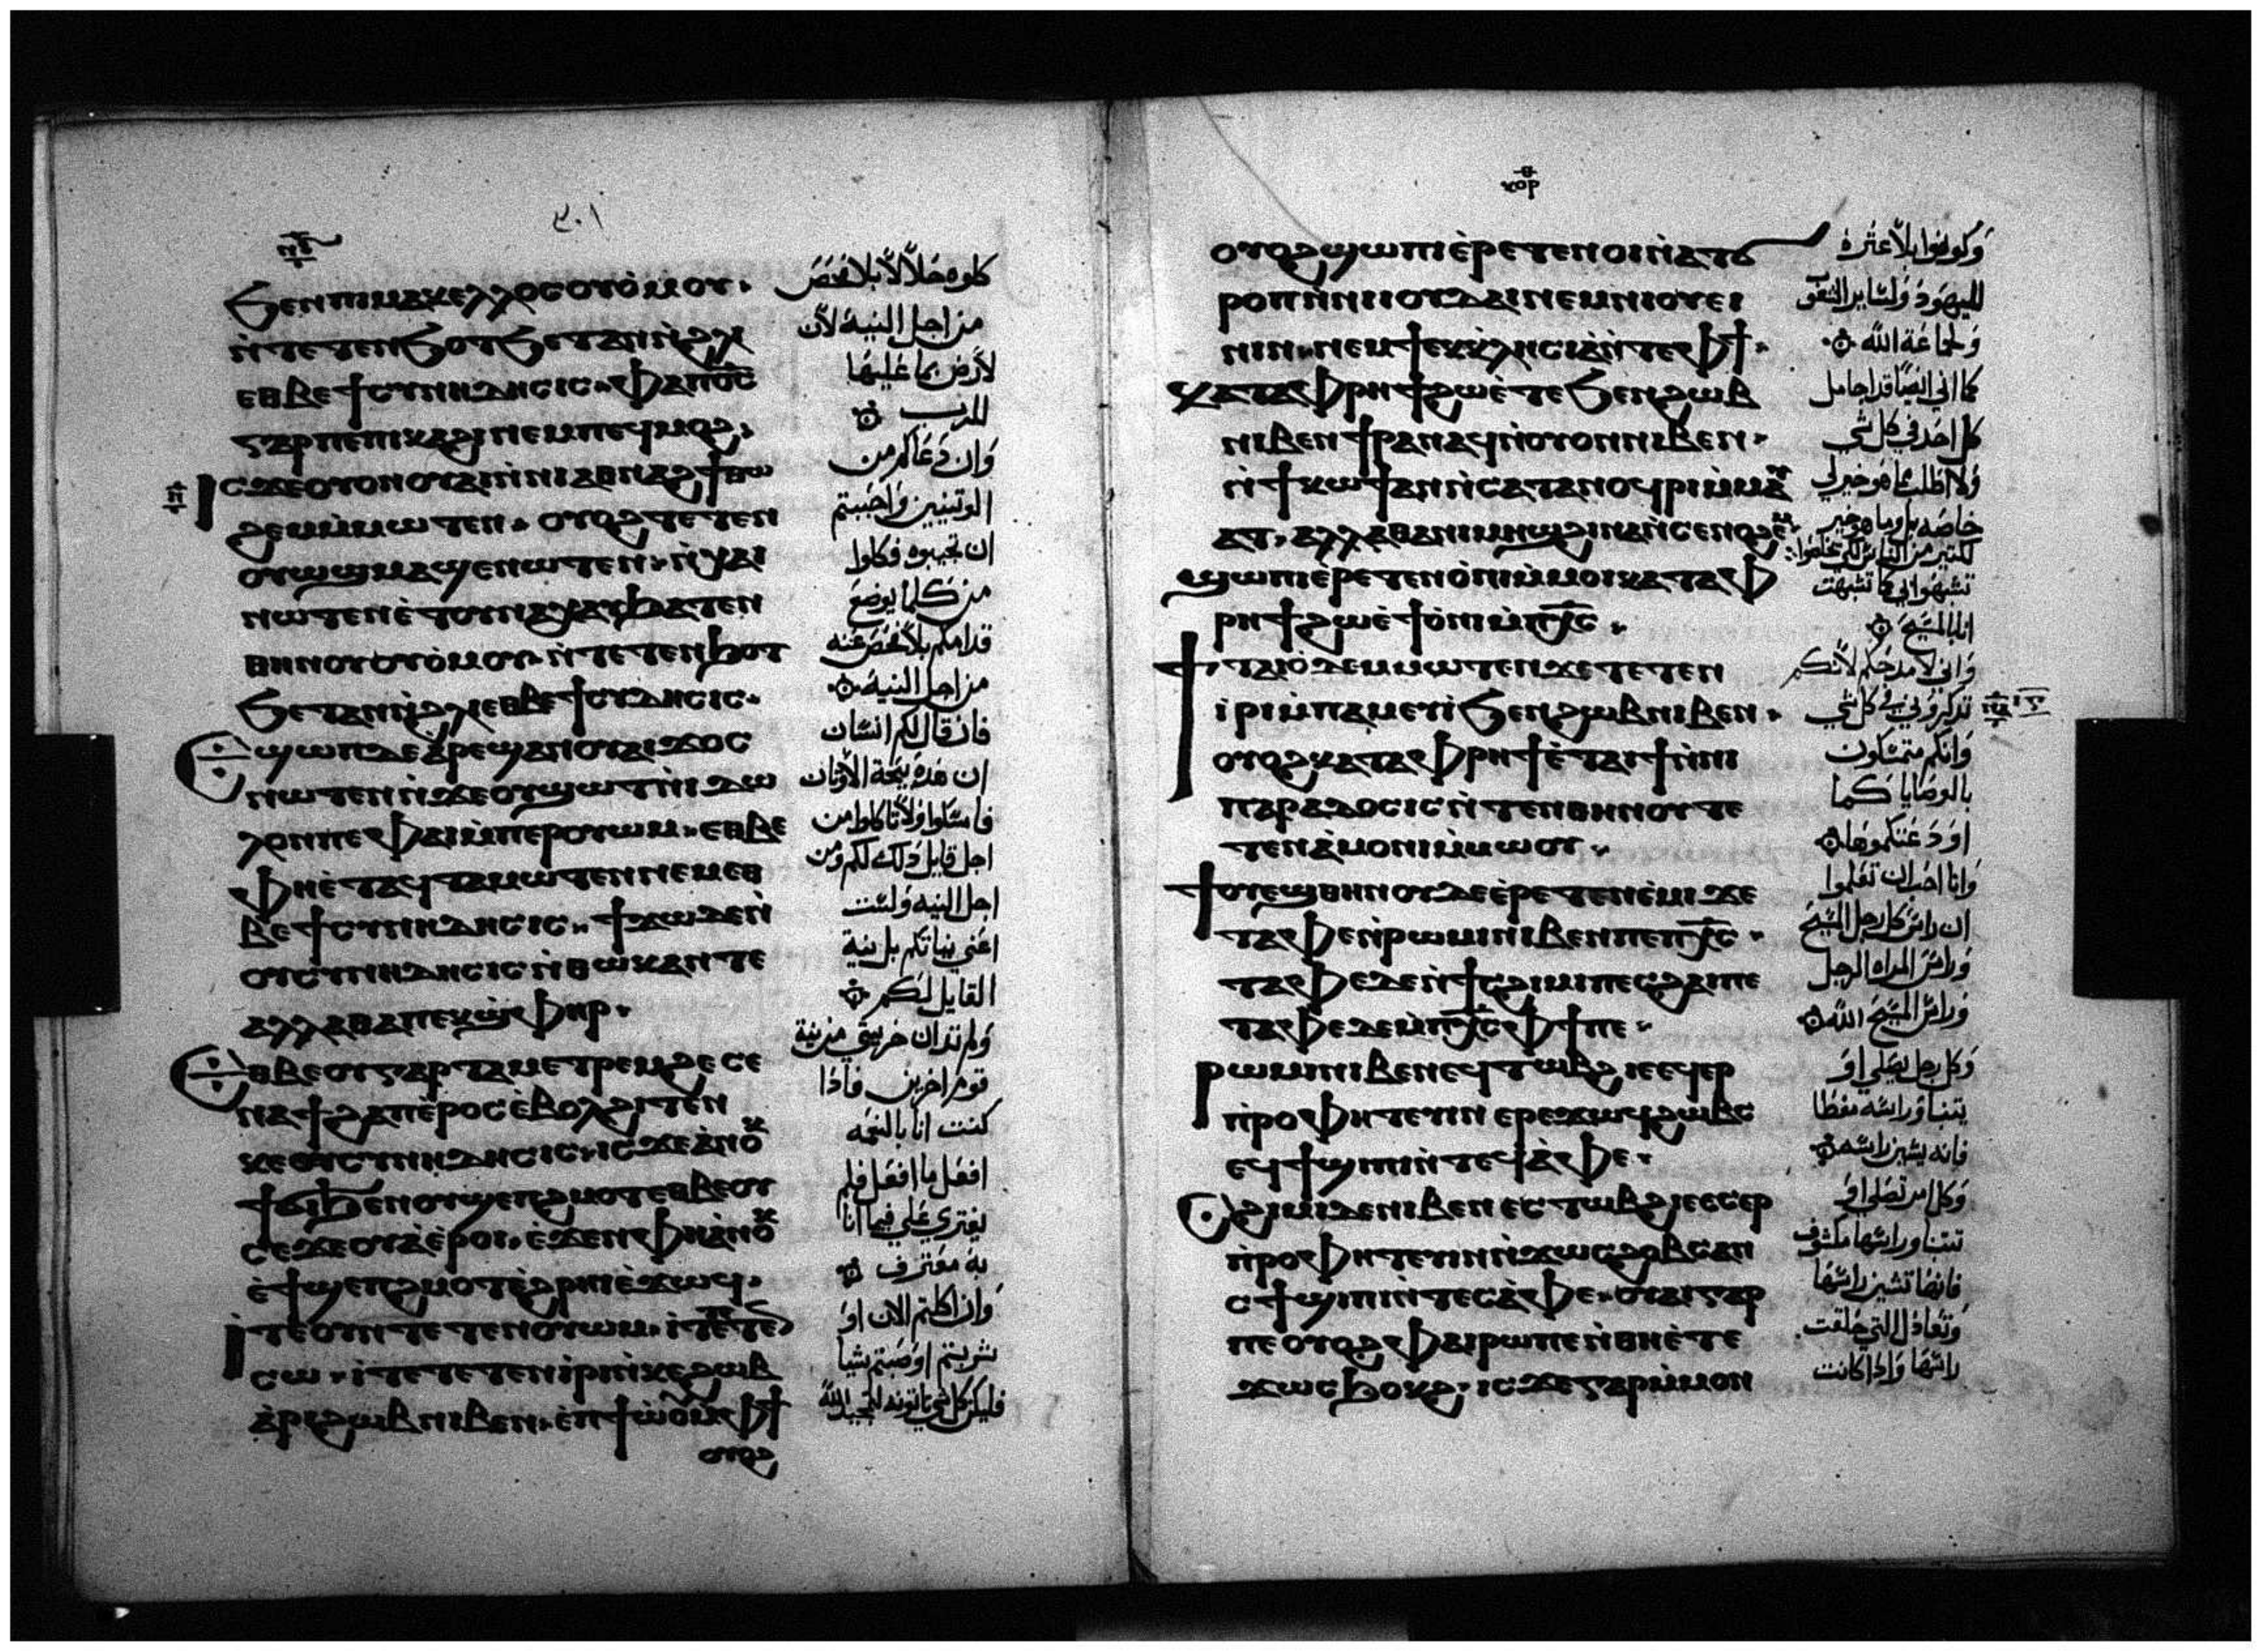 ٣٠١
ϧⲉⲛⲡⲓⲙⲁⲕⲉⲗⲗⲟⲥⲟⲩⲟ̀ⲙⲟⲩ.
ⲛ̀ⲧⲉⲧⲉⲛϧⲟⲧϧⲉⲧⲁⲛⲛ̀ϩⲗⲓ
ⲉⲑⲃⲉϯⲥⲩⲛⲏⲇⲏⲥⲓⲥ. ⲫⲁⲡⲟ̅ⲥ̅
ⲅⲁⲣⲡⲉⲡⲓⲕⲁϩⲓⲛⲉⲙⲡⲉϥⲙⲟϩ.
ⲓⲥϫⲉⲟⲩⲟⲛⲟⲩⲁⲓⲛ̀ⲛⲓⲁⲑⲛⲁϩϯⲑⲱ
ϩⲉⲙⲙ̀ⲙⲱⲧⲉⲛ. ⲟⲩⲟϩⲧⲉⲧⲉⲛ
ⲟⲩⲱϣⲙⲁϣⲉⲛⲱⲧⲉⲛ. ⲛ̀ⲭⲁⲓ
ⲛⲱⲧⲉⲛⲉ̀ⲧⲟⲩⲛⲁⲭⲁϥϧⲁⲧⲉⲛ
ⲑⲏⲛⲟⲩⲟⲩⲟ̀ⲙⲟⲩ. ⲛ̀ⲧⲉⲧⲉⲛϧⲟⲧ
ϧⲉⲧⲁⲛⲛ̀ϩⲗⲓⲉⲑⲃⲉϯⲥⲩⲇⲏⲥⲓⲥ.
ⲉϣⲱⲡⲇⲉⲁ̀ⲣⲉϣⲁⲛⲟⲩⲁⲓϫⲟⲥ
ⲛⲱⲧⲉⲛⲛ̀ϫⲉⲟⲩϣⲱⲧⲛ̀ⲓⲇⲱ
ⲗⲟⲛⲡⲉⲫⲁⲓⲙ̀ⲡⲉⲣⲟⲩⲱⲙ. ⲉⲑⲃⲉ
ⲫⲏⲉ̀ⲧⲁϥⲧⲁⲙⲱⲧⲉⲛⲛⲉⲙⲉⲑ
ⲃⲉϯⲥⲩⲛⲏⲇⲏⲥⲓⲥ. ϯϫⲱⲇⲉⲛ̀
ⲟⲩⲥⲩⲛⲏⲇⲏⲥⲓⲥⲛ̀ⲑⲱⲕⲁⲛⲧⲉ
ⲁⲗⲗⲁⲑⲁⲡⲉⲕϣ̀ⲫⲏⲣ.
ⲉⲑⲃⲉⲟⲩⲅⲁⲣⲧⲁⲙⲉⲧⲣⲉⲙϩⲉⲥⲉ
ⲛⲁϯϩⲁⲡⲉ̀ⲣⲟⲥⲉ̀ⲃⲟⲗϩⲓⲧⲉⲛ
ⲕⲉⲟⲩⲥⲩⲛⲏⲇⲏⲥⲓⲥ. ⲓⲥϫⲉⲁ̀ⲛⲟⲕ
ϯϭⲓϧⲉⲛⲟⲩϣⲉⲡϩⲙⲟⲧⲉⲑⲃⲉⲟⲩ
ⲥⲉϫⲉⲟⲩⲁⲉ̀ⲣⲟⲓ. ⲉ̀ϫⲉⲛⲫⲏⲁ̀ⲛⲟⲕ
ⲉ̀ϯϣⲉⲡϩⲙⲟⲧⲉ̀ϩⲣⲏⲓⲉ̀ϫⲱϥ.
ⲓⲧⲉⲟⲩⲛⲧⲉⲧⲉⲛⲟⲩⲱⲙ. ⲓⲧⲉⲧⲉⲧⲉⲛ
ⲥⲱ. ⲓⲧⲉⲧⲉⲧⲉⲛⲓⲣⲓⲛ̀ⲕⲉϩⲱⲃ
ⲁ̀ⲣⲓϩⲱⲃⲛⲓⲃⲉⲛ. ⲉⲩ̀ⲱ̀ⲟⲩⲙ̀ⲫϯ
ⲟⲩⲟϩ
كلوه حلالا بلا فحص
من اجل النية لان
لارض بما عليها
للرب
وان دعاكم من
الوتنيين واحببتم
ان تجيبوه فكلوا
من كلما يوضع
قدامكم بلا فحص عنه
من اجل النية
فان قال لكم انسان
ان هذه ذبيحة الاوثان
فامسكوا ولا تاكلوا من
اجل قايل ذلك لكم ومن
اجل النية ولست
اعني نياتكم بل نية
القايل لكم
ولم تدان حريتي من نية
قوم اخرين فاذا
كنت انا بالنعمة
افعل ما افعل فلم
يفتري علي فيما انا
به معترف
وان اكلتم الان او
شربتم او صنعتم شيا
فليكن كل شي تاتونه لتمجيد الله
ⲟⲩⲟϩϣⲱⲡⲓⲉ̀ⲣⲉⲧⲉⲛⲟⲓⲛ̀ⲁⲧϭ
ⲣⲟⲡⲛ̀ⲛⲓⲓⲟⲩⲇⲁⲓⲛⲉⲙⲛⲓⲟⲩⲉⲓ
ⲛⲓⲛ. ⲛⲉⲙϯⲉⲕⲕⲗⲏⲥⲓⲁ̀ⲛ̀ⲧⲉⲫϯ.
ⲕⲁⲧⲁⲫⲣⲏϯϩⲱⲉ̀ⲧⲉϧⲉⲛϩⲱⲃ
ⲛⲓⲃⲉⲛϯⲣⲁⲛⲁϥⲛ̀ⲟⲩⲟⲛⲛⲓⲃⲉⲛ.
ⲛ̀ϯⲕⲱϯⲁⲛⲛ̀ⲥⲁⲧⲁⲛⲟϥⲣⲓⲙ̀ⲙⲁⲩ
ⲁⲧ. ⲁⲗⲗⲁⲑⲁⲛⲓⲙⲏϣϩⲓⲛⲁⲛ̀ⲥⲉⲛⲟϩⲉⲙ.
ϣⲱⲡⲓⲉ̀ⲣⲉⲧⲉⲛⲟ̀ⲛⲓⲙ̀ⲙⲟⲓⲕⲁⲧⲁⲫ
ⲣⲏϯϩⲱⲉ̀ϯⲟ̀ⲛⲓⲙ̀ⲡⲭ̅ⲥ̅.
ϯⲧⲁⲓⲟ̀ⲇⲉⲙⲙⲱⲧⲉⲛϫⲉⲧⲉⲧⲉⲛ
ⲓⲣⲓⲙ̀ⲡⲁⲙⲉⲩⲓ̀ϧⲉⲛϩⲱⲃⲛⲓⲃⲉⲛ.
ⲟⲩⲟϩⲕⲁⲧⲁⲫⲣⲏϯⲉ̀ⲧⲁⲓϯⲛ̀ⲛⲓ
ⲡⲁⲣⲁⲇⲟⲥⲓⲥⲛ̀ⲧⲉⲛⲑⲏⲛⲟⲩⲧⲉ
ⲧⲉⲛⲁ̀ⲙⲟⲛⲓⲙ̀ⲙⲱⲟⲩ.
ϯⲟⲩⲉϣⲑⲏⲛⲟⲩⲇⲉⲉ̀ⲣⲉⲧⲉⲛⲉ̀ⲙⲓϫⲉ
ⲧⲁⲫⲉⲛ̀ⲣⲱⲙⲓⲛⲓⲃⲉⲛⲡⲉⲡⲭ̅ⲥ̅.
ⲧⲁⲫⲉⲇⲉⲛ̀ϯⲥϩⲓⲙⲓⲡⲉⲥϩⲁⲓⲡⲉ
ⲧⲁⲫⲉⲇⲉⲙ̀ⲡⲭ̅ⲥ̅ⲫϯⲡⲉ.
ⲣⲱⲙⲓⲛⲓⲃⲉⲛⲉϥⲧⲱⲃϩⲓⲉⲉϥⲉⲣ
ⲡ̀ⲣⲟⲫⲏⲧⲉⲩⲓⲛ ⲉⲣⲉϫⲱϥϩⲱⲃⲥ
ⲉϥϯϣⲓⲡⲓⲛ̀ⲧⲉϥⲁ̀ⲫⲉ.
ⲥϩⲓⲙⲓⲇⲉⲛⲓⲃⲉⲛⲉⲥⲧⲱⲃϩⲓⲉⲉⲥⲉⲣ
ⲡ̀ⲣⲟⲫⲏⲧⲉⲩⲓⲛⲛ̀ϫⲱⲥϩⲟⲃⲥⲁⲛ
ⲥϯϣⲓⲡⲓⲛ̀ⲧⲉⲥⲁ̀ⲫⲉ. ⲟⲩⲁⲓⲅⲁⲣ
ⲡⲉⲟⲩⲟϩⲫⲁⲓⲣⲱⲡⲉⲛ̀ⲑⲏⲉ̀ⲧⲉ
ϫⲱⲥϧⲟⲕϩ. ⲓⲥϫⲉⲅⲁⲣⲙ̀ⲙⲟⲛ
وكونوا بلا عثرة
لليهود ولساير الشعوب
ولجماعة الله
كما اني ايضا قد اجامل
كل احد في كل شي
ولا اطلب ما هو خير لي
خاصه بل وما هو خير
لكثير من الناس لكي يخلصوا
تشبهوا بي كما تشبهت
انا بالمسيح
واني لامدحكم لانكم
تذكروني في كل شي
وانكم متمسكون
بالوصايا كما
اودعتكموها
وانا احب ان تعلموا
ان راس كل رجل المسيح
وراس المراه الرجل
وراس المسيح الله
وكل رجل يصلي او
يتنبا وراسه مغطا
فانه يشين راسه
وكل امراة تصلي او
تتنبا وراسها مكشوف
فانها تشين راسها
وتعادل التي حلقت
راسها واذا كانت